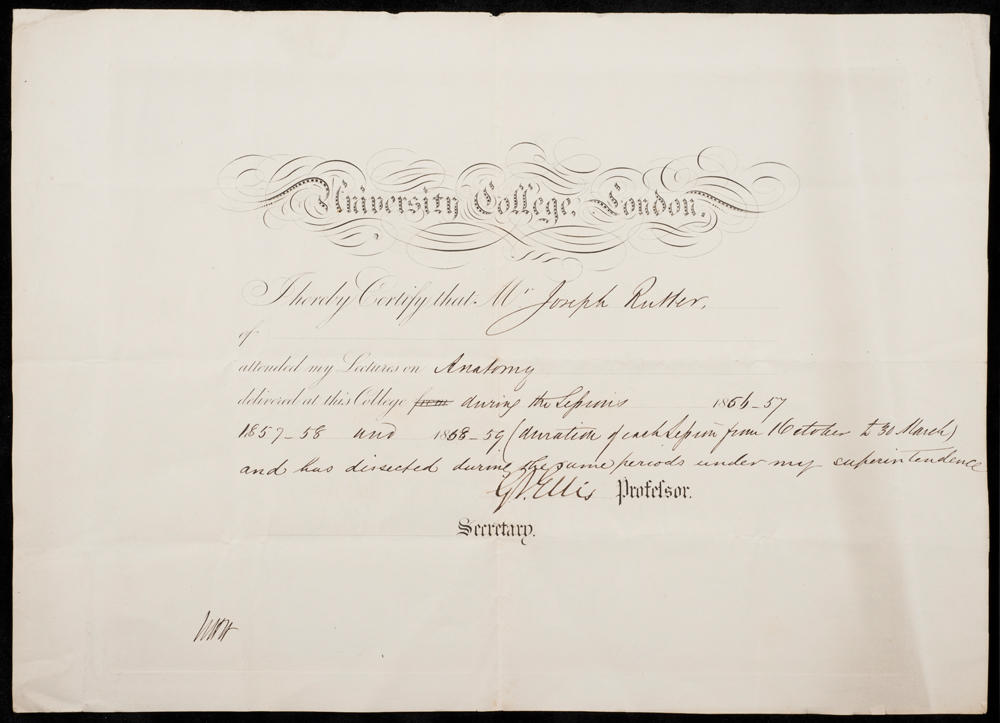 University College, London.
I hereby Certify that Mr Joseph Rutter.
of
attended my Lectures on Anatomy
delivered at this College from during the Sessions 1856-57
1857-58 and 1858-59 (duration of each Session from 1 October to 30 March)
and has dissected during the same periods under my superintendence
G V Ellis Professor.
Secretary.